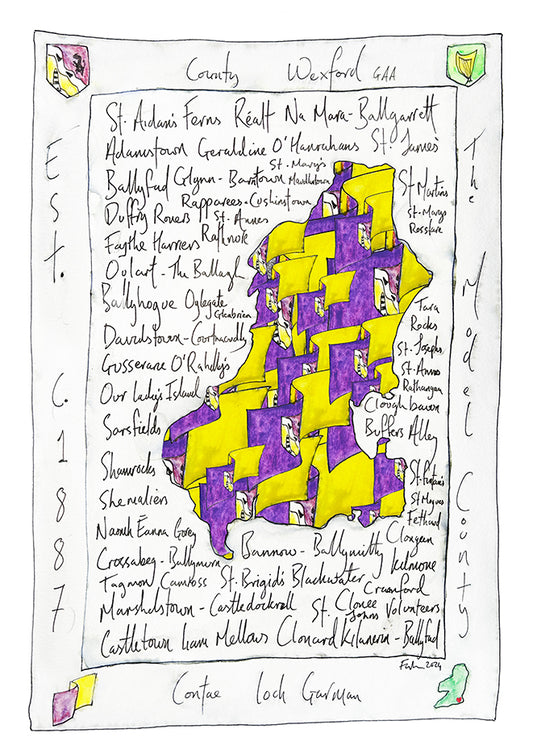 County Wexford GAA
Est. C. 1887
The Model County
St. Aidan's Ferns Réalt Na Mara - Ballygarrett
Adamstown Geraldine O'Hanrahans St. James'
Ballyfad Glynn - Barntown St. Mary's Maudlintown
Rapparees - Cushinstown
St. Martins
Duffry Rovers St. Annes
St. Marys
Rosslare
Faythe Harriers Rathnure
Oulart - The Ballagh
Ballyhogue Oylegate
Glenbrien
Tara
Rocks
Davidstown - Courtnacuddy
St. Josephs
Gusserane O'Rahilly's
St. Annes
Rathangan
Our Lady's Island
Cloughbawn
Sarsfields
Buffers Alley
Shamrocks
St. Fintan's
Shelmaliers
St Mogues
Fethard
Naomh Éanna Gorey
Bannow - Ballymitty Cloxgeen
Crossabeg - Ballymurn
Kilmore
Tagmon Camross St. Brigid's Blackwater
Craanford
Marshalstown - Castledockrell St. Clonee
Johns
Volunteers
Castletown Liam Mellows Clonard Kilanerin - Ballyfad
2024
Contae Loch Garman